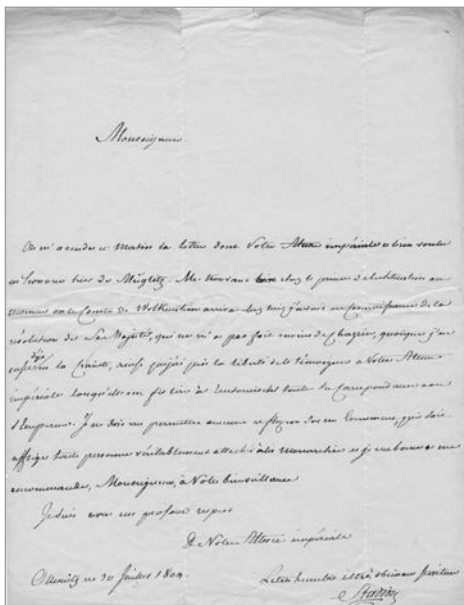 Monseigneur
On m'a rendu ce matin la lettre dont Votre Altesse impériale a bien voulu
m'honorer hier de Müglitz. Me trouvant chez le prince de Lichtenstein au
moment où le Comte de Wolkenstein arriva chez lui, j'avois eu Connoissance de la
résolution de Sa Majesté, qui ne m'a pas fait moins de Chagrin, quoique j'en
déjà la Crainte, aussi
impériale lorsqu'elle toute la Correspondance avec
l'Empereur. Je ne dois me permettre aucune reflexion sur un qui doit
affliger toute personne véritablement attachée à la monarchie et je me borne a me
recommander, Monseigneur, à Votre bienveillance
Je suis avec un profond respect
De Votre Altesse impériale
Ollmütz ce 30 Juillet 1809.
Le très humble et très obéissant serviteur